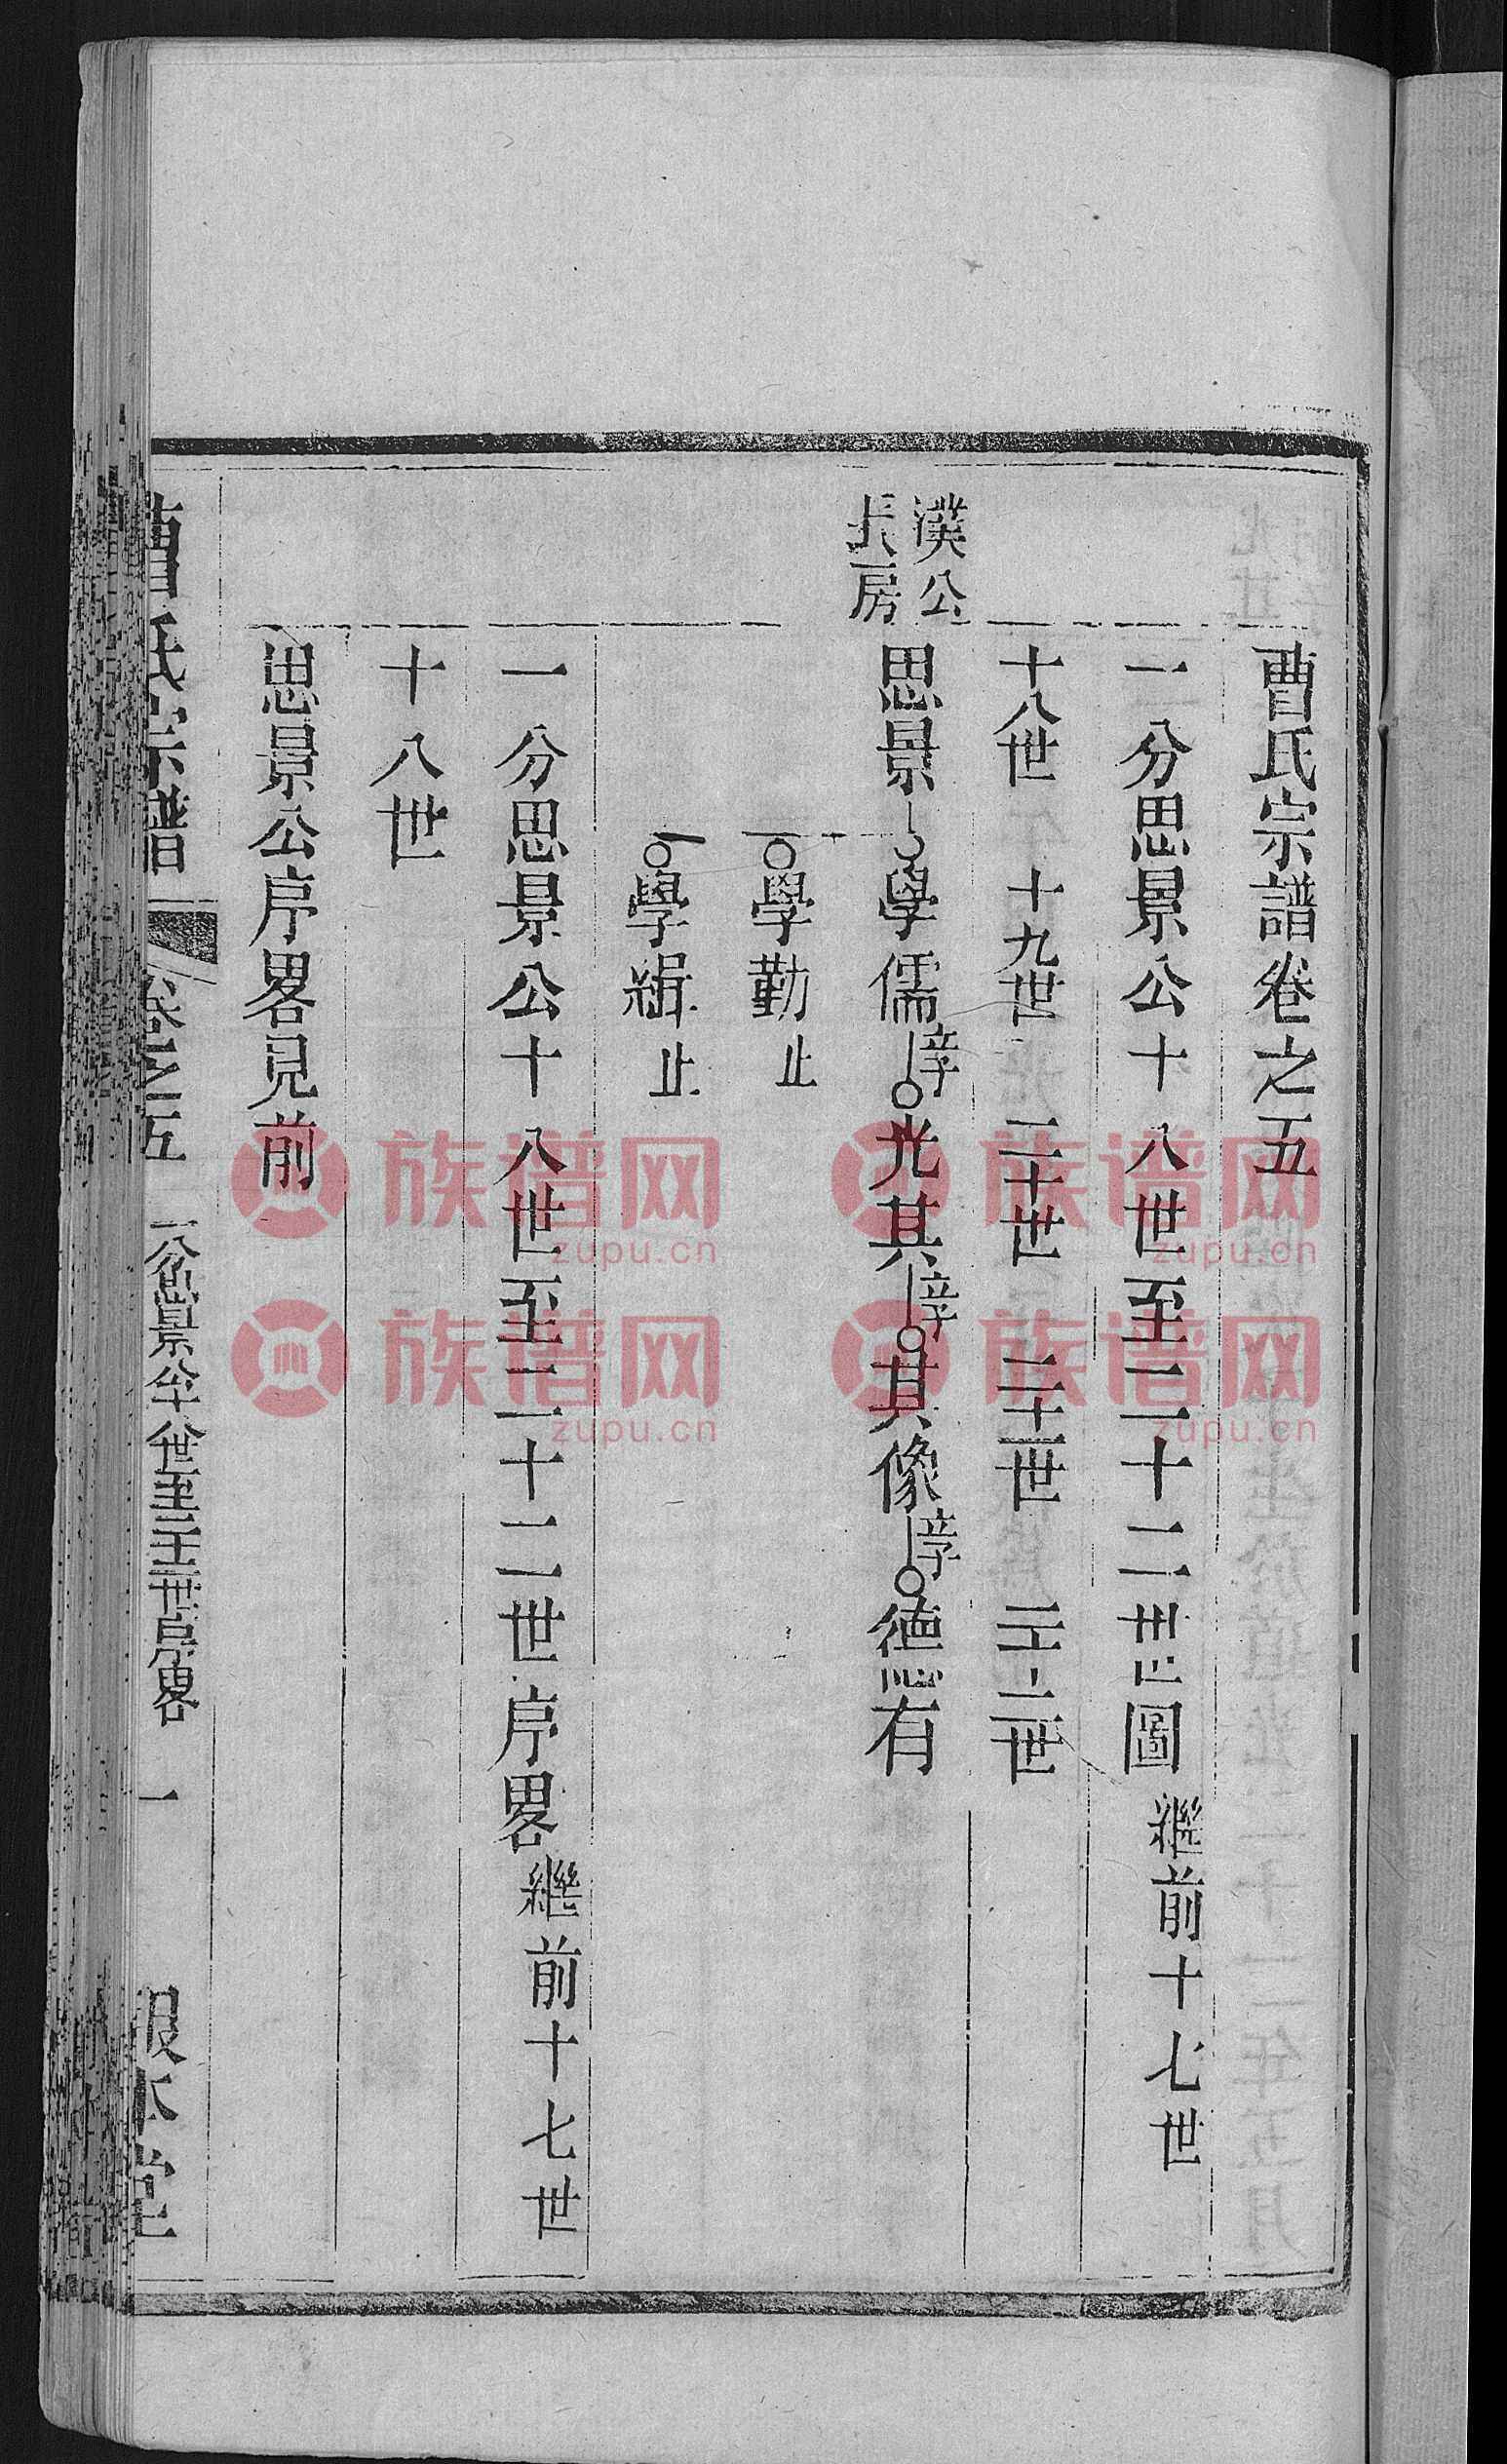 曹氏宗譜卷之五
一分思景公十八世至二十二世世圖 繼前十七世
十八世 十九世 二十世 二十一世 二十二世
漢公
長房
思景 學儒 淳 光其 淳 其像 淳 德有
學勤 止
學緝 止
一分思景公十八世至二十二世序畧 繼前十七世
十八世
思景公序畧見前
曹氏宗譜 卷之五 一分思景公十八世至二十二世序畧 一 報本堂
族谱网
zupu.cn
族谱网
zupu.cn
族谱网
zupu.cn
族谱网
zupu.cn